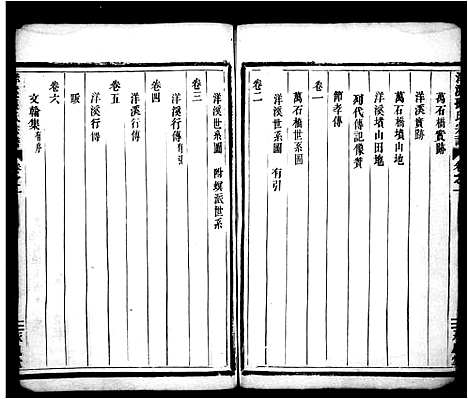 洋溪實跡
萬石橋實跡
萬石橋墳山地
洋溪墳山田地
列代傳記像贊
節孝傳
卷一
萬石橋世系圖
洋溪世系圖 有引
卷二
洋溪世系圖 附蠙派世系
卷三
洋溪行傳
卷四
洋溪行傳
卷五
跋
卷六
文翰集